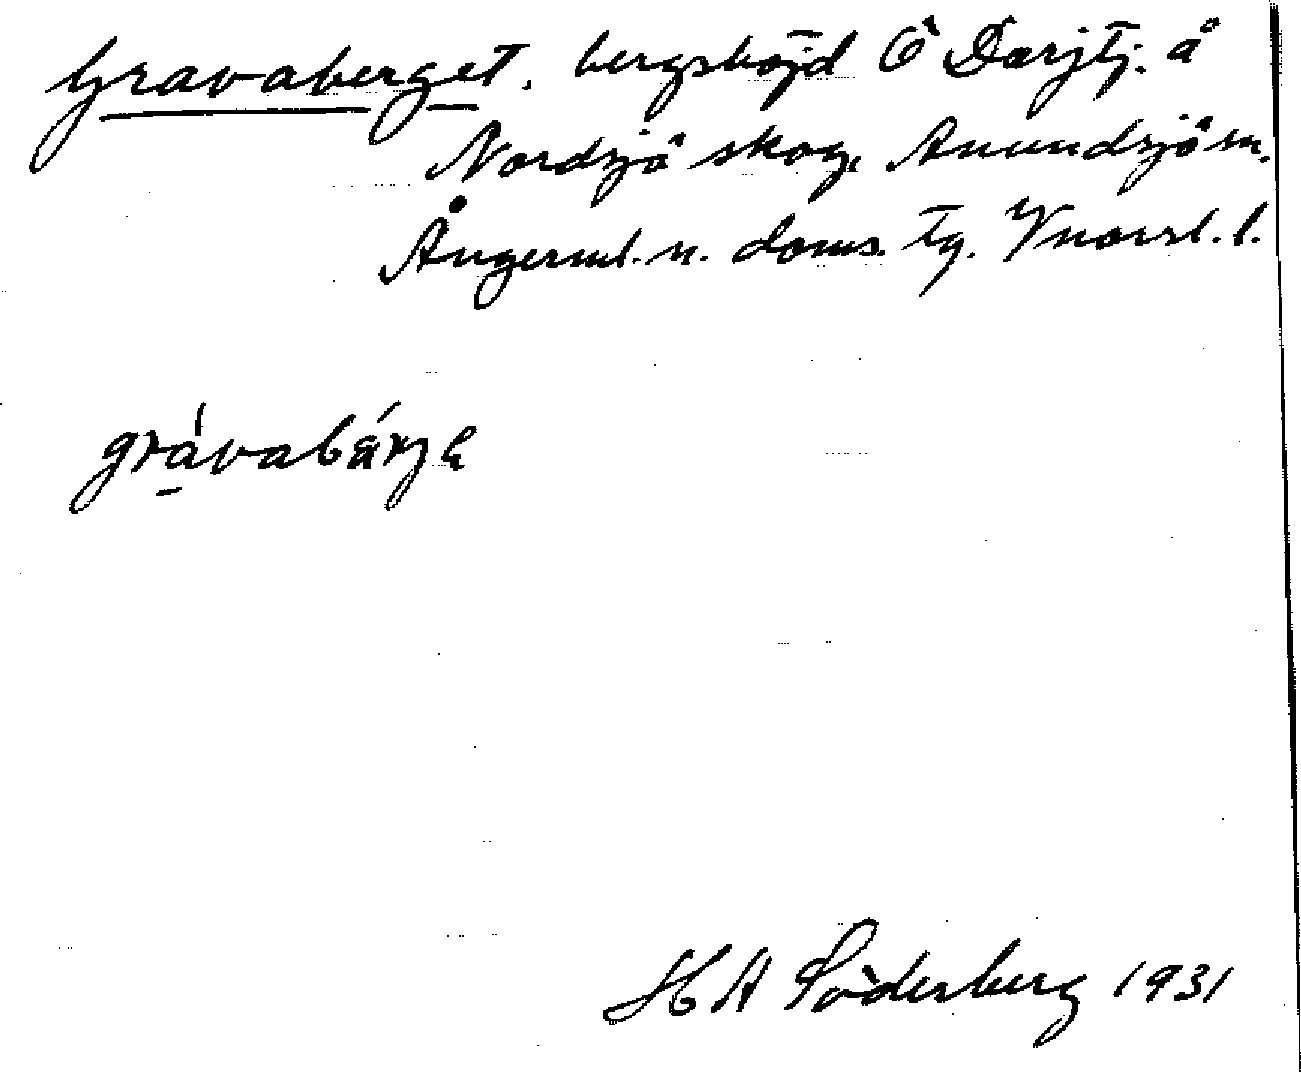 Gravaberget. bergshöjd Ö Darjtj. å
Nordsjö skog, Anundsjö sn.
Ångerml. n. doms. tg. Vnorrl. l.
gravabärjɐ
H A Söderberg 1931